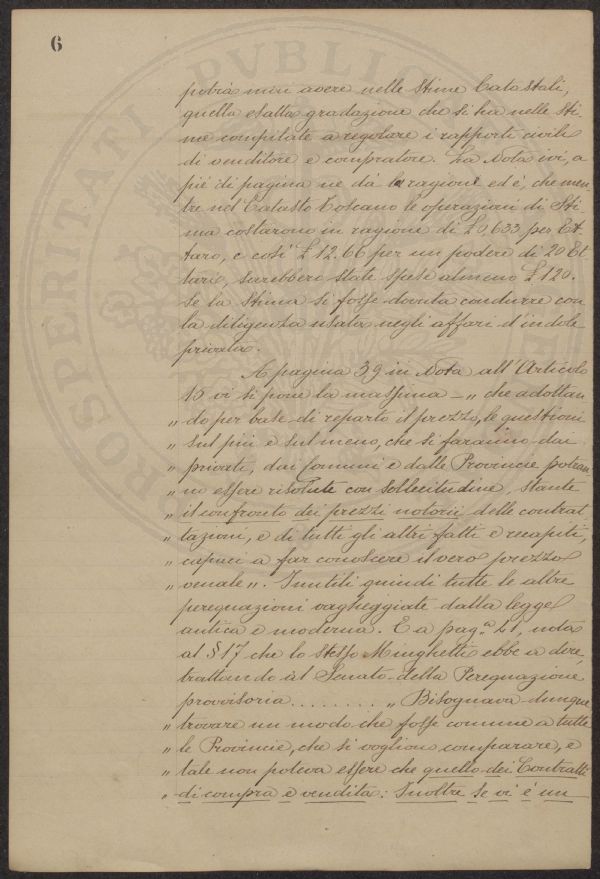 6
potrà mai avere nelle Stime Catastali,
quella esatta gradazione che si ha nelle sti-
me compilate a regolare i rapporti civili
di venditore e compratore. La Nota ivi, a
piè di pagina ne dà la ragione ed è, che men-
tre nel Catasto Toscano le operazioni di Sti-
ma costarono in ragione di £ 0,633 per Et-
taro, e così £ 12.66 per un podere di 20 Et-
tari, sarebbero state spese almeno £ 120.
se la Stima si fosse dovuta condurre con
la diligenza usata negli affari d'indole
privata.
A pagina 39 in Nota all'Articolo
15 vi si pone la massima - „ che adottan-
„ do per base di reparto il prezzo, le questioni
„ sul più e sul meno, che si faranno dai
„ privati, dai Comuni e dalle Provincie potran-
„ no essere risolute con sollecitudine, stante
„ il confronto dei prezzi notorii delle contrat-
„ tazioni, e di tutti gli altri fatti e recapiti,
„ capaci a far conoscere il vero prezzo
„ venale „. Inutili quindi tutte le altre
perequazioni vagheggiate dalla legge
antica e moderna. E a pag.ª 21, nota
al § 17 che lo stesso Minghetti ebbe a dire,
trattando al Senato della Perequazione
provvisoria......... „ Bisognava dunque
„ trovare un modo che fosse comune a tutte
„ le Provincie, che si vogliono comparare, e
„ tale non poteva essere che quello dei Contratti
„ di compra e vendita: Inoltre se vi è un
PVBLIC
ROSPERITATI